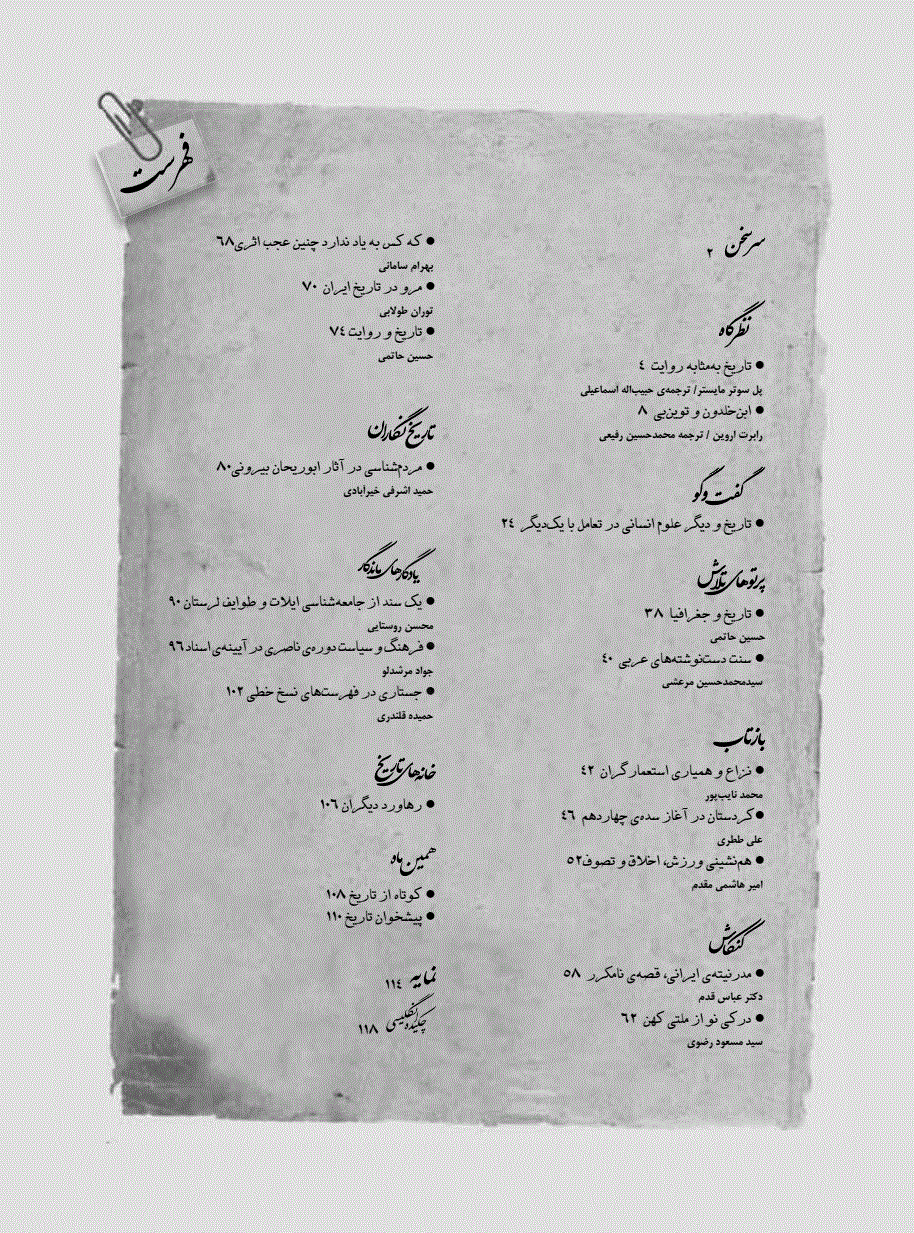 فهرست
سرسخن ۲
نظرگاه
● تاریخ به‌مثابه روایت ۴
پل سوتر مایستر/ ترجمه‌ی حبیب‌اله اسماعیلی
● ابن‌خلدون و توین‌بی ۸
رابرت اروین / ترجمه محمدحسین رفیعی
گفت‌وگو
● تاریخ و دیگر علوم انسانی در تعامل با یک‌دیگر ۲۴
پرتوهای تلاش
● تاریخ و جغرافیا ۳۸
حسین حاتمی
● سنت دست‌نوشته‌های عربی ۴۰
سیدمحمدحسین مرعشی
بازتاب
● نزاع و همیاری استعمارگران ۴۲
محمد نایب‌پور
● کردستان در آغاز سده‌ی چهاردهم ۴۶
علی ططری
● هم‌نشینی ورزش، اخلاق و تصوف ۵۲
امیر هاشمی مقدم
کنکاش
● مدرنیته‌ی ایرانی، قصه‌ی نامکرر ۵۸
دکتر عباس قدم
● درکی نو از ملتی کهن ۶۲
سید مسعود رضوی
● که کس به یاد ندارد چنین عجب اثری ۶۸
بهرام سامانی
● مرو در تاریخ ایران ۷۰
توران طولابی
● تاریخ و روایت ۷۴
حسین حاتمی
تاریخ‌نگاران
● مردم‌شناسی در آثار ابوریحان بیرونی ۸۰
حمید اشرفی خیرآبادی
یادگارهای ماندگار
● یک سند از جامعه‌شناسی ایلات و طوایف لرستان ۹۰
محسن روستایی
● فرهنگ و سیاست دوره‌ی ناصری در آیینه‌ی اسناد ۹۶
جواد مرشدلو
● جستاری در فهرست‌های نسخ خطی ۱۰۲
حمیده قلندری
خانه‌های تاریخ
● رهاورد دیگران ۱۰۶
همین ماه
● کوتاه از تاریخ ۱۰۸
● پیشخوان تاریخ ۱۱۰
نمایه ۱۱۴
چکیده انگلیسی ۱۱۸